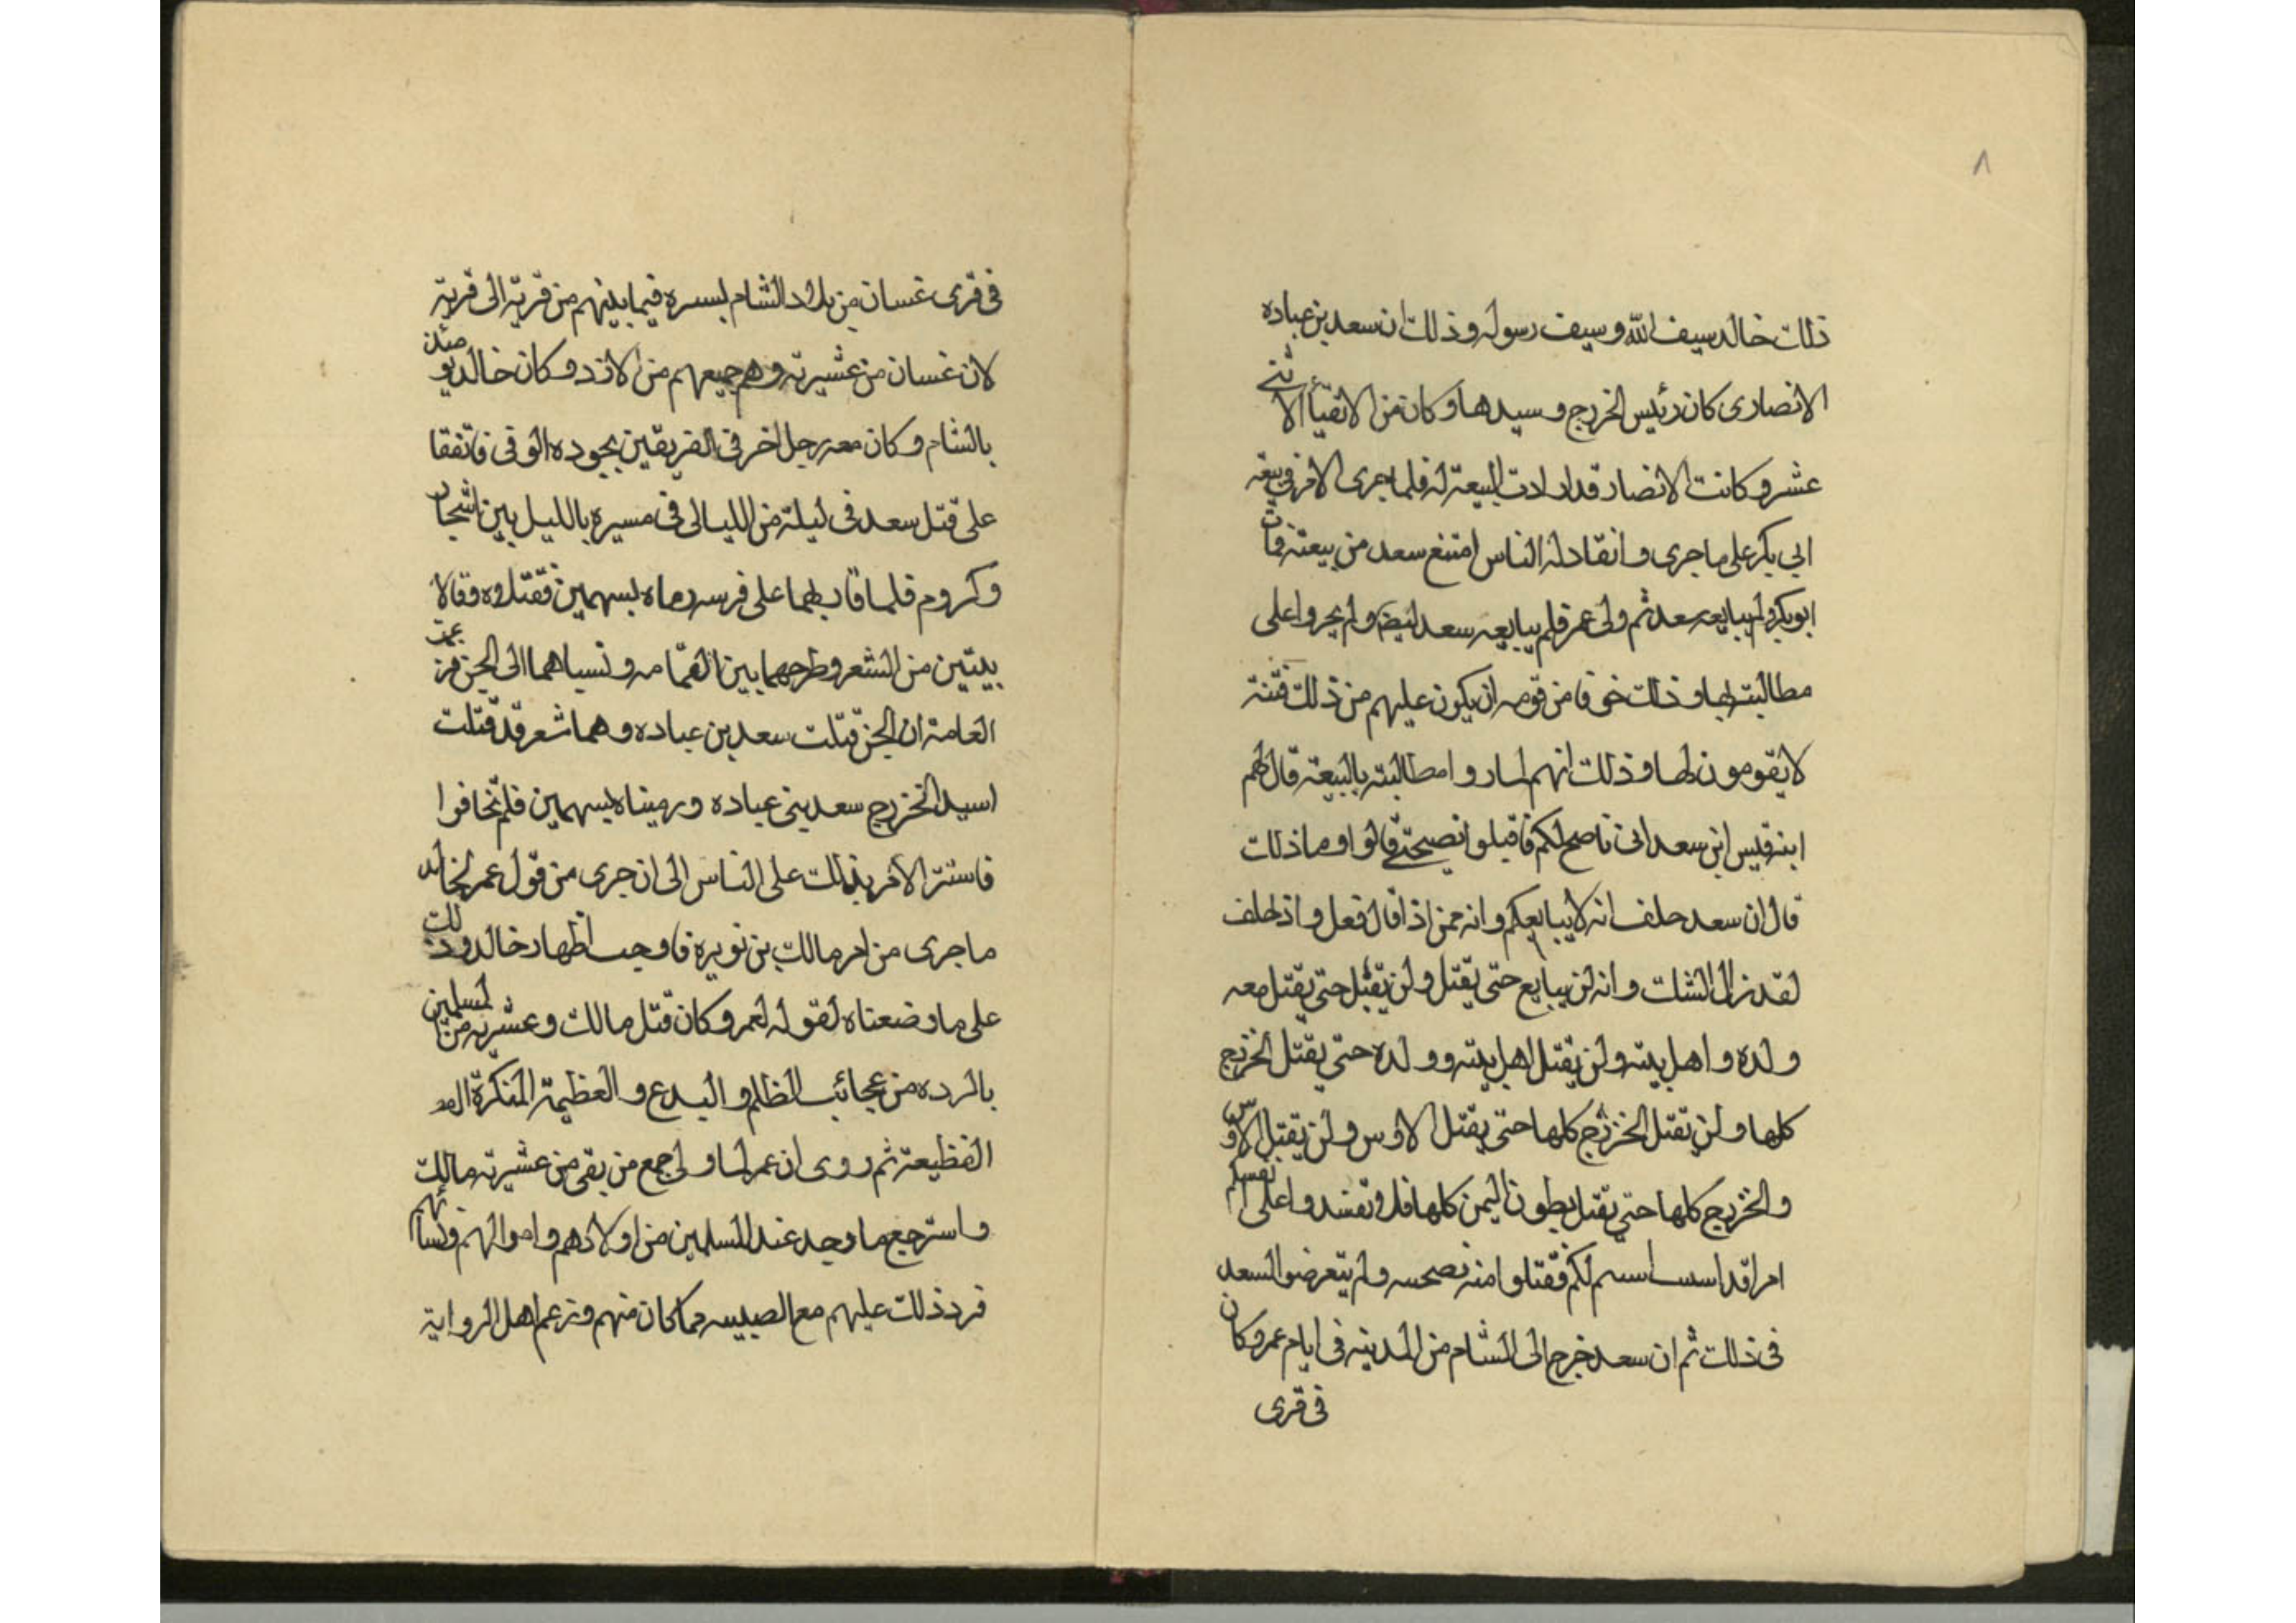 ٨
ذلك خالد سيف الله وسيف رسوله وذلك ان سعد بن عباده
الانصارى كان رئيس الخزرج وسيدها وكان من الانقياأ الاثنى
عشر وكانت الانصار قد ارادت البيعة له فلما جرى الامر فى بيعة
ابى بكر على ما جرى وانقاد له الناس امتنع سعد من بيعته فمات
ابو بكر ولم يبايعه سعد ثم ولى عمر فلم يبايعه سعد ايضا ولم يجروا على
مطالبته بها وذلك خوفا من قومه ان يكون عليهم من ذلك فتنة
لا يقومون لها وذلك انهم لما رواا مطالبته بالبيعة قال لهم
ابنه قيس ابن سعد انى ناصح لكم فاقبلوا نصيحتى قالوا وما ذلك
قال ان سعد حلف انه لا يبايعكم وانه ممن اذا قال فعل واذ حلف
لقد زال الشك وانه لن يبايع حتى يقتل ولن يقتل حتى يقتل معه
ولده واهل بيته ولن يقتل اهل بيته وولده حتى يقتل الخزرج
كلها ولن يقتل الخزرج كلها حتى يقتل الاوس ولن يقتل الاوس
والخزرج كلها حتى يقتل بطون اليمن كلها فلا تفسدوا على انفسكم
امرا قد لكم فقتلوا منه ولم يتعرضوا لسعد
فى ذلك ثم ان سعد خرج الى الشام من المدينه فى ايام عمر وكان
فى قرى
فى قرى غسان من بلاد الشام فيما بينهم من قرية الى قرية
لان غسان من عشيرته وهم جميعهم من الازد وكان خالد يومئذ
بالشام وكان معه رجل اخر فى الفريقين بجوده فاتفقا
على قتل سعد فى ليلة من الليالى فى مسيره بالليل بين اشجار
وكروم فلما على فرسه رماه بسهمين فقتلوه فقالا
بيتين من الشعر وطرحهما بين العامه ونسباهما الى الجن فزعمت
العامة ان الجن قتلت سعد بن عباده وهما شعر قد قتلت
اسيد الخزرج سعد بنى عباده ورميناه بسهمين فلم تخافوا
فاستتر الامر بذلك على الناس الى ان جرى من قول عمر لخالد
ما جرى من امر مالك بن نويرة فاوجب اظهار خالد وذلك
على ما وضعناه لقوله لعمر وكان قتل مالك وعشيرته من المسلمين
بالرده من عجائب الظلم والبدع والعظيمة المنكرة
الفظيعة ثم روى ان عمر لما ولى جمع من بقى من عشيرته مالك
واسترجع ما وجد عند المسلمين من اولادهم واموالهم ونسائهم
فرد ذلك عليهم مع مما كان منهم وزعم اهل الرواية